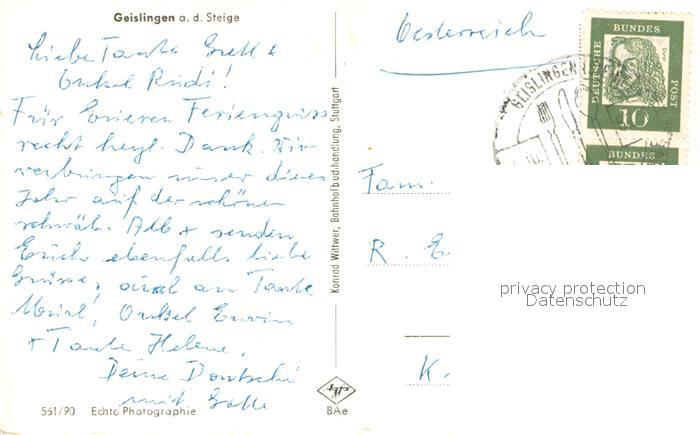 Geislingen a. d. Steige
Liebe Tante Grette
Onkel Rudi!
Für Eueren Feriengruss
recht herzl. Dank. Wir
verbringen unser dieses
Jahr auf der schönen
schwäb. Alb + senden
Euch ebenfalls liebe
Grüsse, auch an Tante
Onkel Erwin
+ Tante Helene,
Deine
mit
561/90 Echte Photographie
Konrad Wittwer, Bahnhofbuchhandlung, Stuttgart
Agfa
BAe
Oesterreich
GEISLINGEN
DEUTSCHE
BUNDES
POST
10
BUNDES
Fam.
R. E
K.
privacy protection
Datenschutz